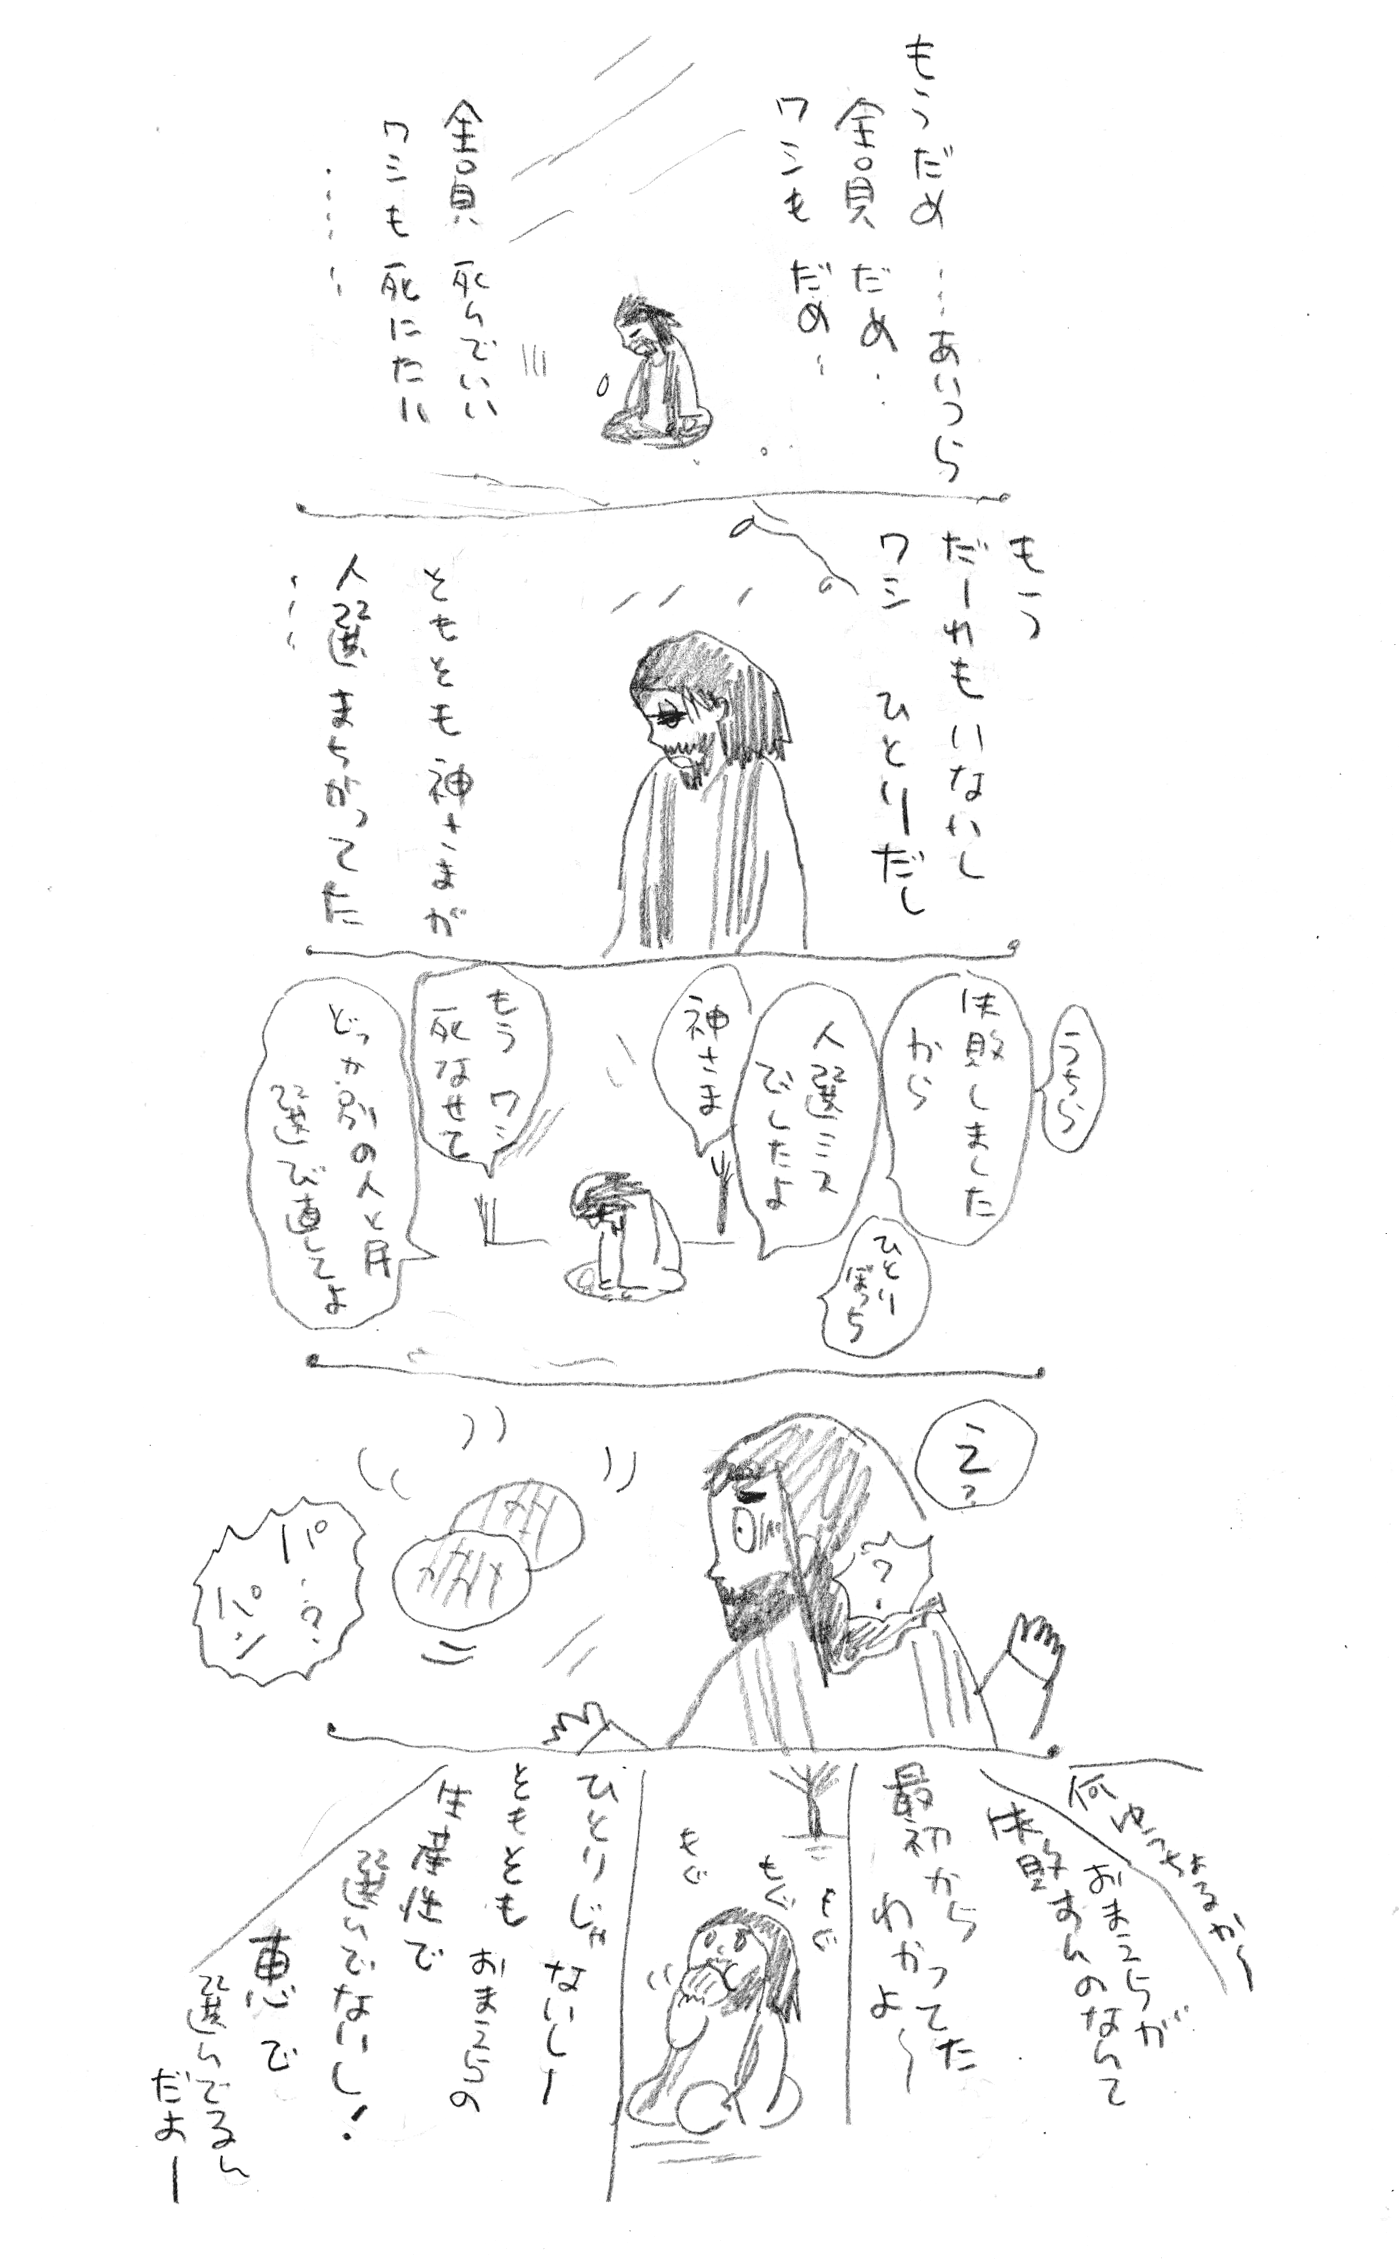 もうだめ……あいつら
全員だめ…
ワシもだめ…
全員死んでいい
ワシも死にたい
……
もう
だーれもいないし
ワシ ひとりーだし
そもそも神さまが
人選まちがってた
…
うちら
失敗しました
から
人選ミス
でしたよ
ひとり
ぼっち
神さま
もうワシ
死なせて
どっか別の人と民
選び直してよ
え?
?
パ…?
パン
何ゆっちょるか〜
おまえらが
失敗すんのなんて
最初から
わかってた
よ〜
もぐ
もぐ
もぐ
ひとりじゃ
ないしー
そもそも
おまえらの
生産性で
選んでないし!
恵で
選んでるん
だよー